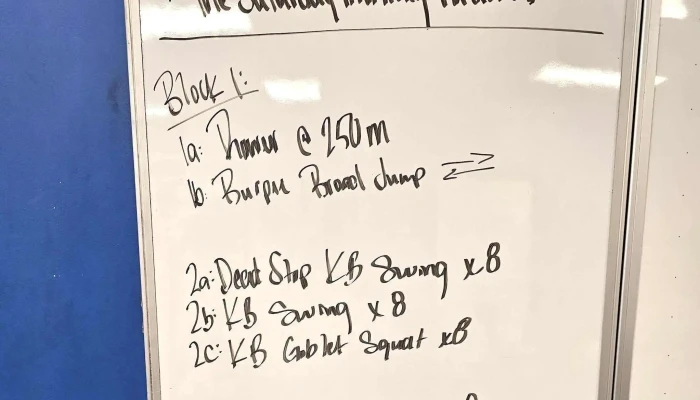 The Saturday Morning
Block 1:
1a: @ 250m
1b: Burpee Broad Jump ⇄
2a: Dead Stop KB Swing x8
2b: KB Swing x 8
2c: KB Goblet Squat x8